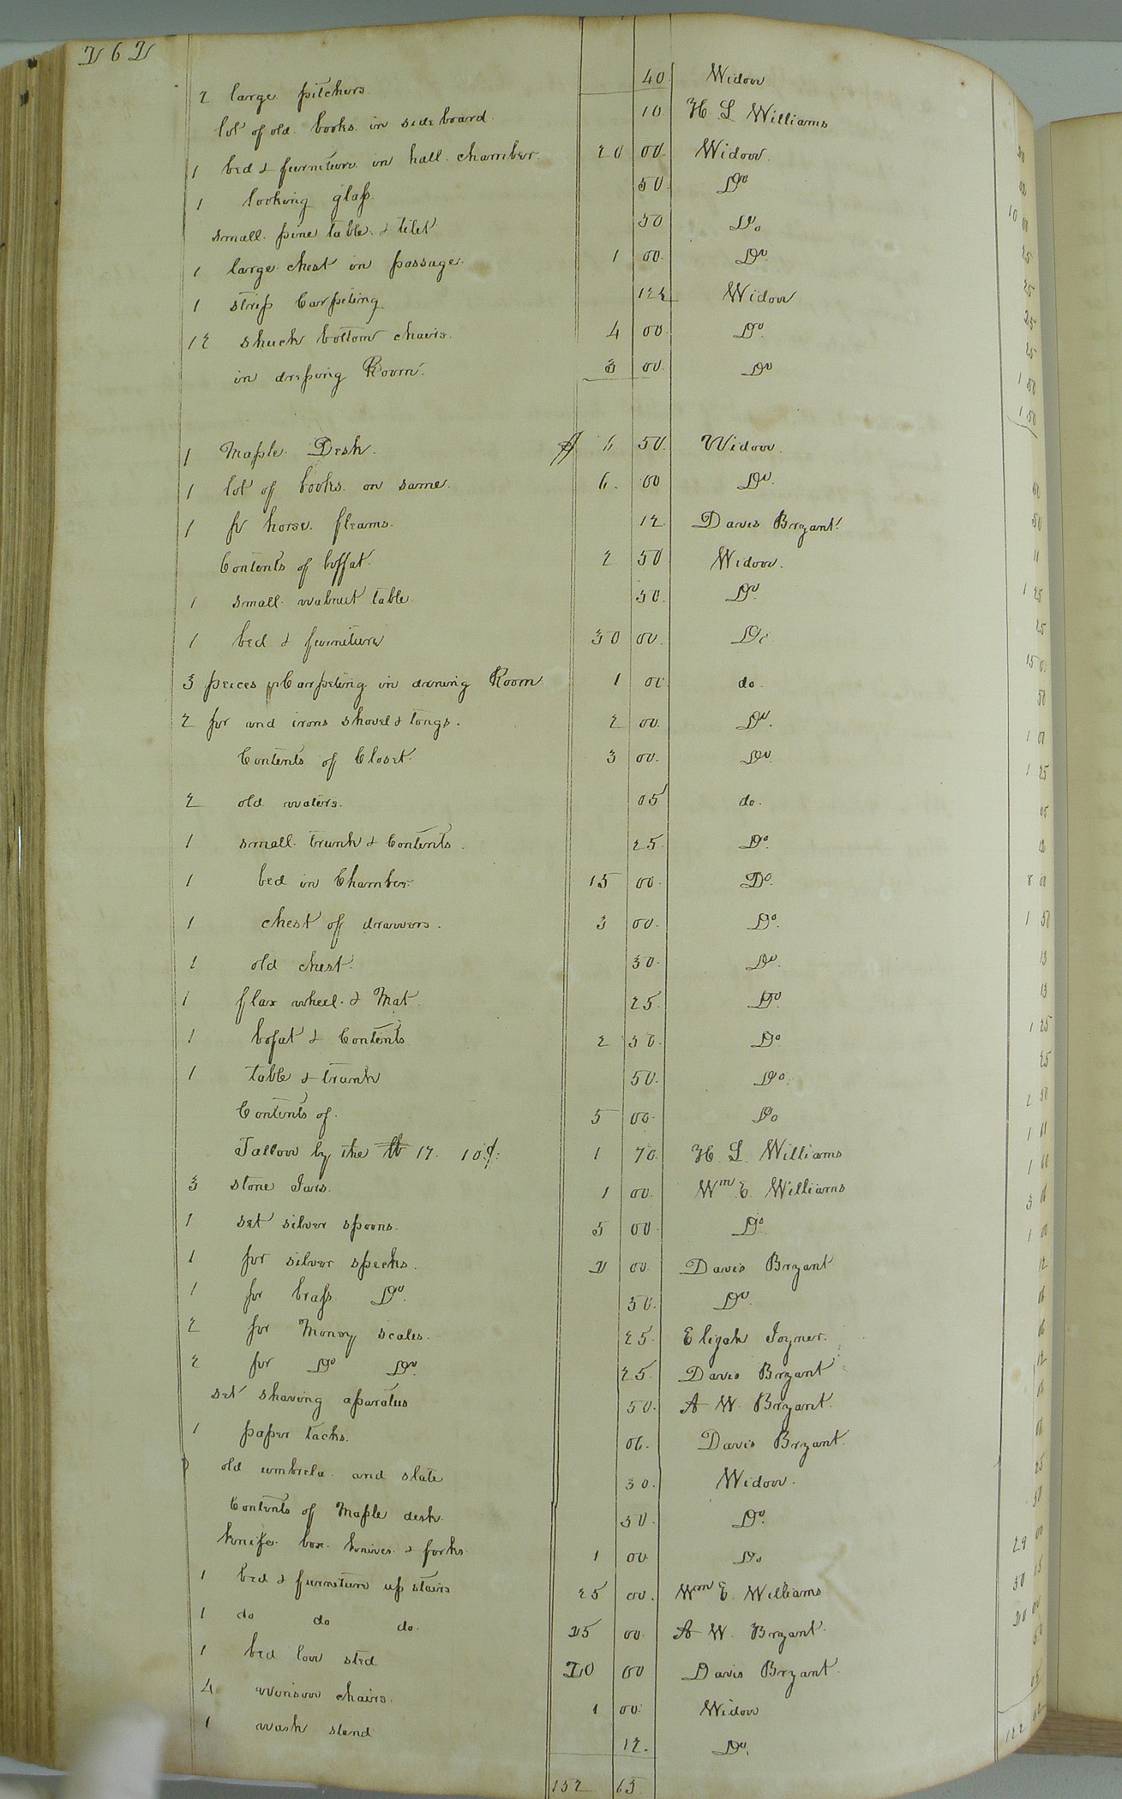 262
2 large pitchers 40 Widow
lot of old books in side board 10 H L Williams
1 bed & furniture in hall chamber 20 00 Widow
1 looking glass 50 Do
small pine table & tilet 50 Do
1 large chest in passage 1 00 Do
1 strip Carpeting 12½ Widow
12 shuck bottom chairs 4 00 Do
in dressing Room 3 00 Do
1 Maple Desk $ 6 50 Widow
1 lot of books on same 6 00 Do
1 pr horse fleams 12 Davis Bryant
Contents of boffat 2 50 Widow
1 small walnut table 50 Do
1 bed & furniture 30 00 Do
3 peices Carpeting in dining Room 1 00 do
2 pr and irons shovel & tongs 2 00 Do
Contents of Closet 3 00 Do
2 old waters 05 do
1 small trunk & Contents 25 Do
1 bed in Chamber 15 00 Do
1 chest of drawers 3 00 Do
1 old chest 30 Do
1 flax wheel & Mat 25 Do
1 bofat & Contents 2 50 Do
1 table & trunk 50 Do
Contents of 5 00 Do
Tallow by the lb 17 10¢ 1 70 H L Williams
3 stone Jars 1 00 Wm E Williams
1 set silver spoons 5 00 Do
1 pr silver specks 2 00 Davis Bryant
1 pr brass Do 50 Do
2 pr Money scales 25 Elijah Joyner
2 pr Do Do 25 Davis Bryant
set shaving aparatus 50 A W Bryant
1 paper tacks 06 Davis Bryant
old umbrela and slate 30 Widow
Contents of Maple desk 50 Do
knife box knives & forks 1 00 Do
1 bed & furniture up stairs 25 00 Wm E Williams
1 do do do 25 00 A W Bryant
1 bed low sted 20 00 Davis Bryant
4 winsow chairs 1 00 Widow
1 wash stand 12 Do
152 63